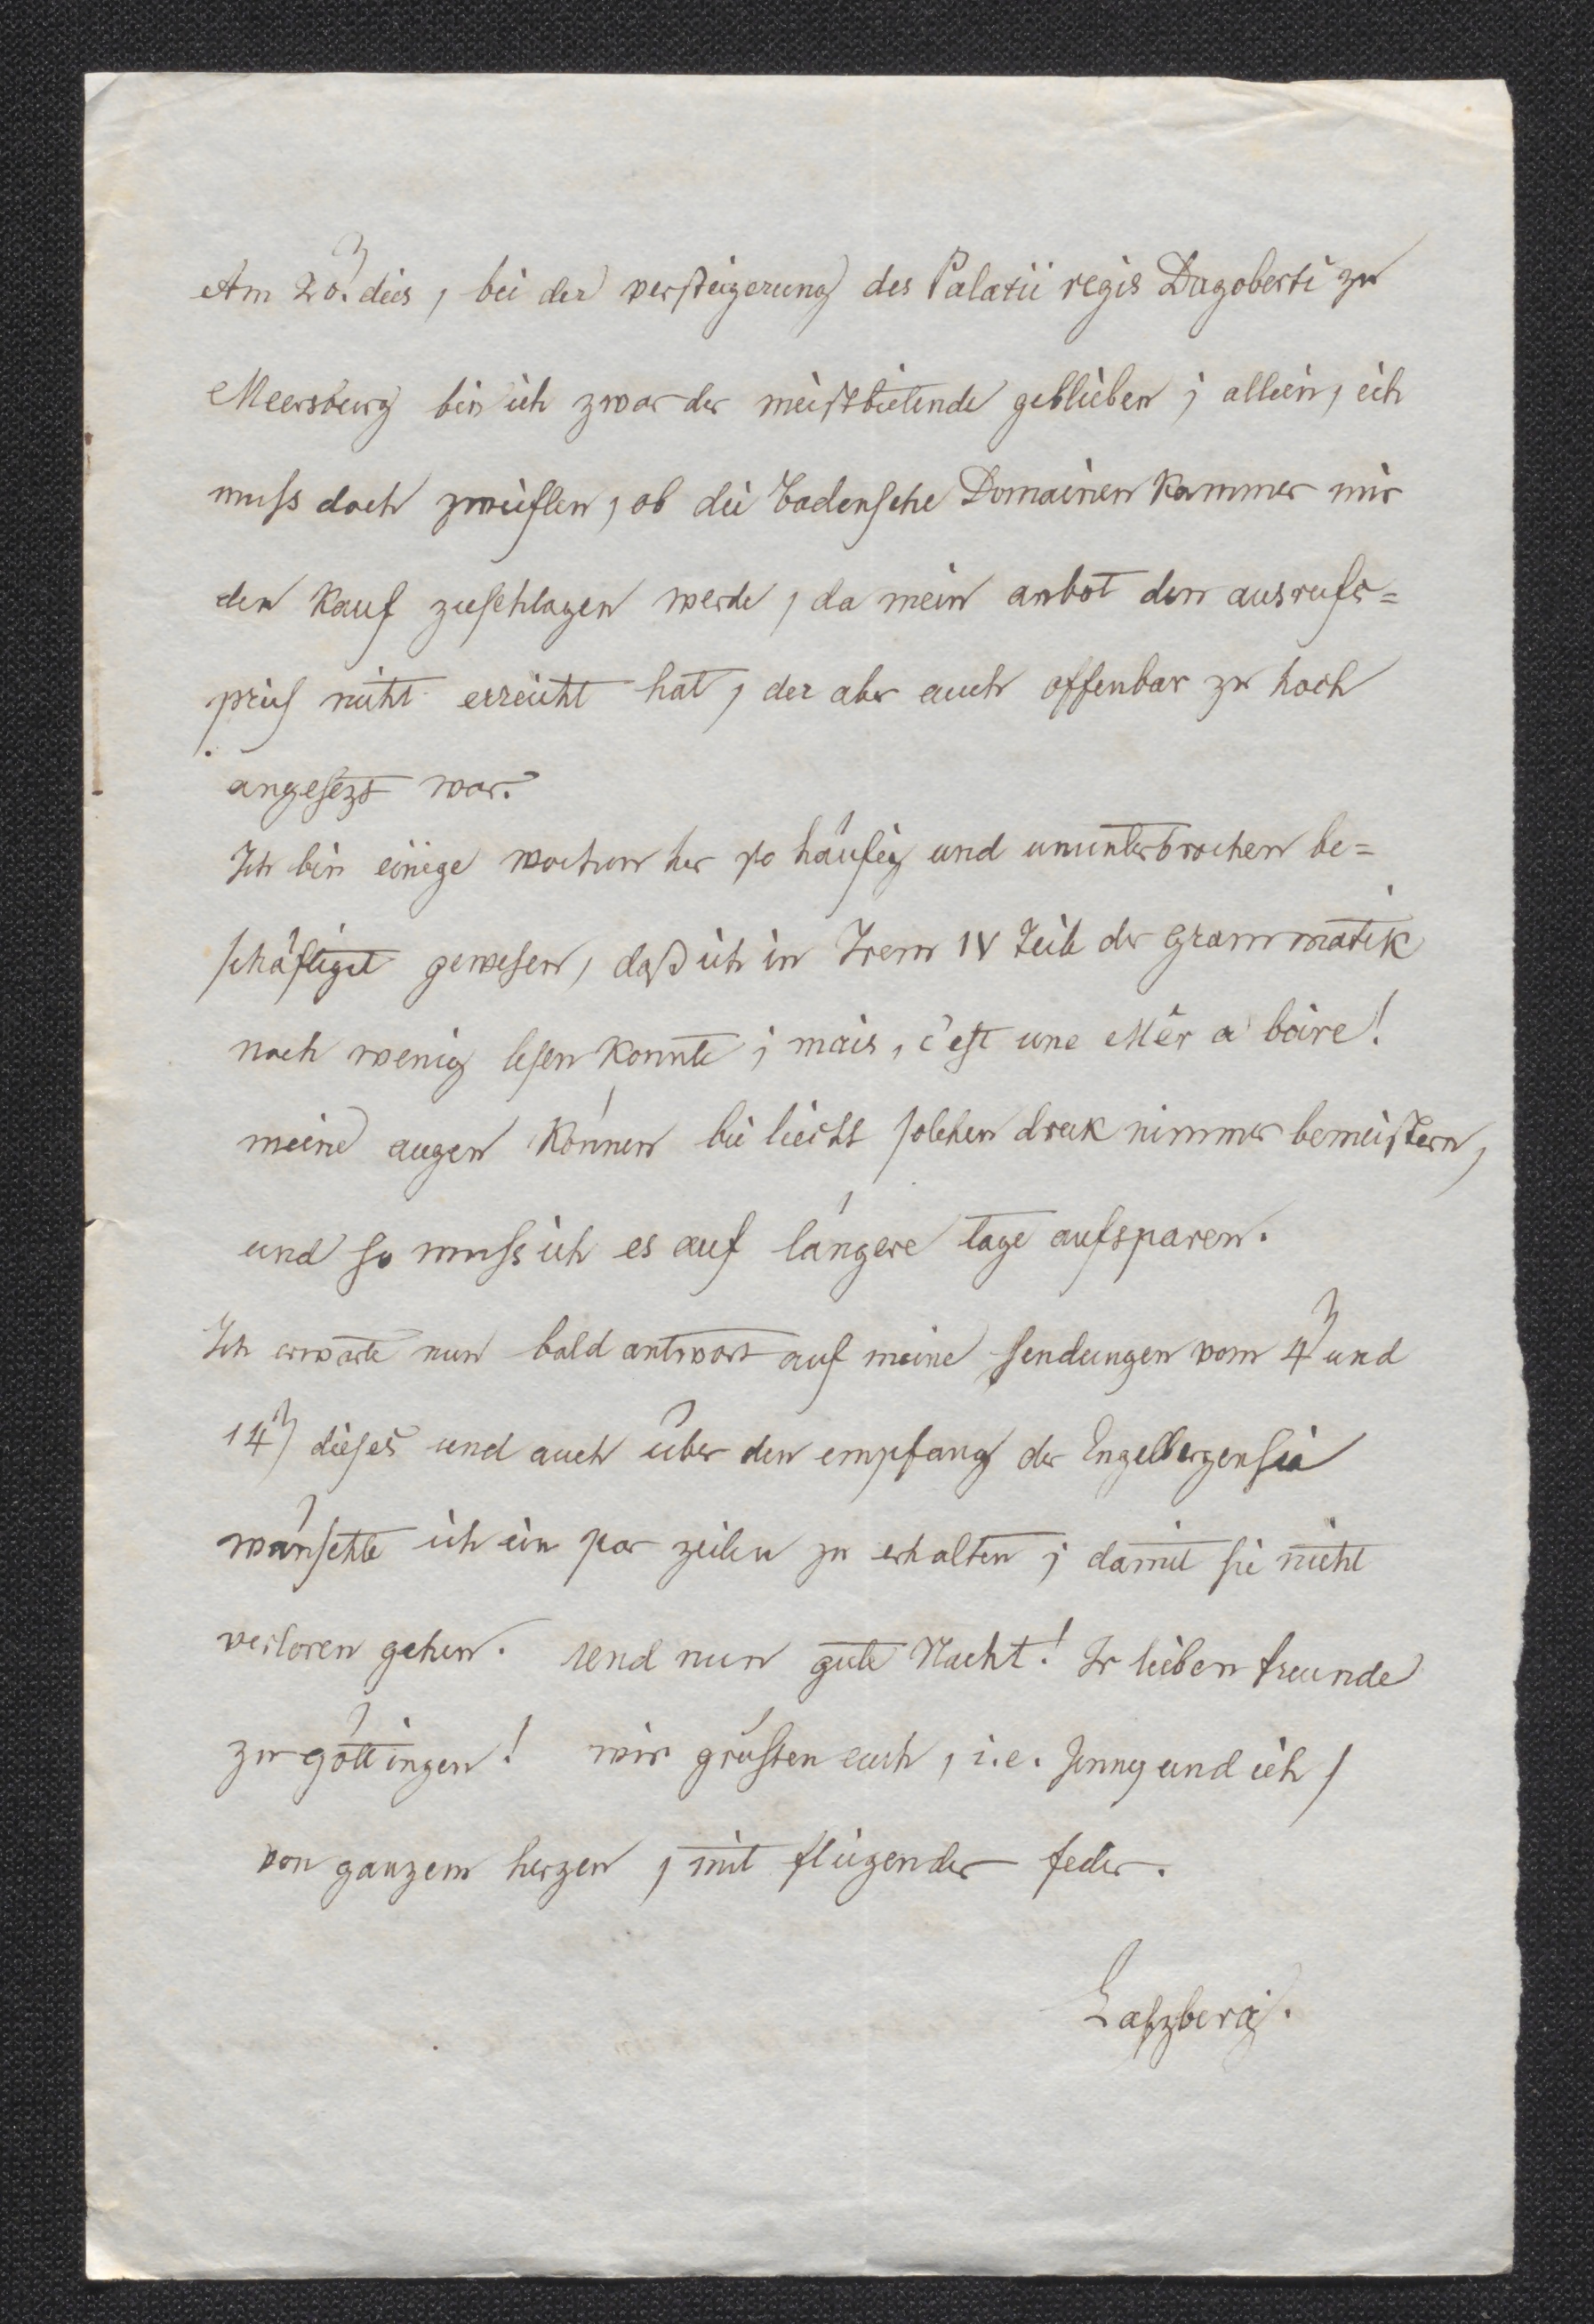 Am 20ⁿ. dies, bei der versteigerung des Palatii regis Dagoberti zu
Meersburg bin ich zwar der meistbietende geblieben; allein, ich
muss doch zweiflen, ob die badensche Domainen kammer mir
den kauf zuschlagen werde, da mein anbot den ausrufs=
preis nicht erreicht hat, der aber auch offenbar zu hoch
angesezt war.
Ich bin einige wochen her so häufig und ununterbrochen be=
schäftiget gewesen, daß ich in Irem IV Teile der Grammatik
noch wenig lesen konnte; mais, c'est une Mêr a boire!
meine augen können bei liecht solchen druk nimmer bemeistern,
und so muss ich es auf längere tage aufsparen.
Ich erwarte nun bald antwort auf meine sendungen vom 4ⁿ und
14ⁿ dieses und auch über den empfang der Engelbergensia
wünschte ich ein par zeilen zu erhalten; damit sie nicht
verloren gehen. Und nun gute Nacht! Ir lieben freunde
zu Göttingen! wir grüssen euch, i.e. Jenny und ich,
von ganzem herzen, mit fliegender feder.
Laszberg.